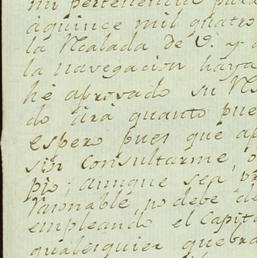 mi pertenencia para
aquince mil quatro
la Rcalada de V. y a
la navegacion haya
he abrovado su Rs
do dira quanto pue
espero pues que ap
sin Consultarme, o
pio; aunque sea pr
raronable, no debe de
empleando el Capit
qualesquier quebra